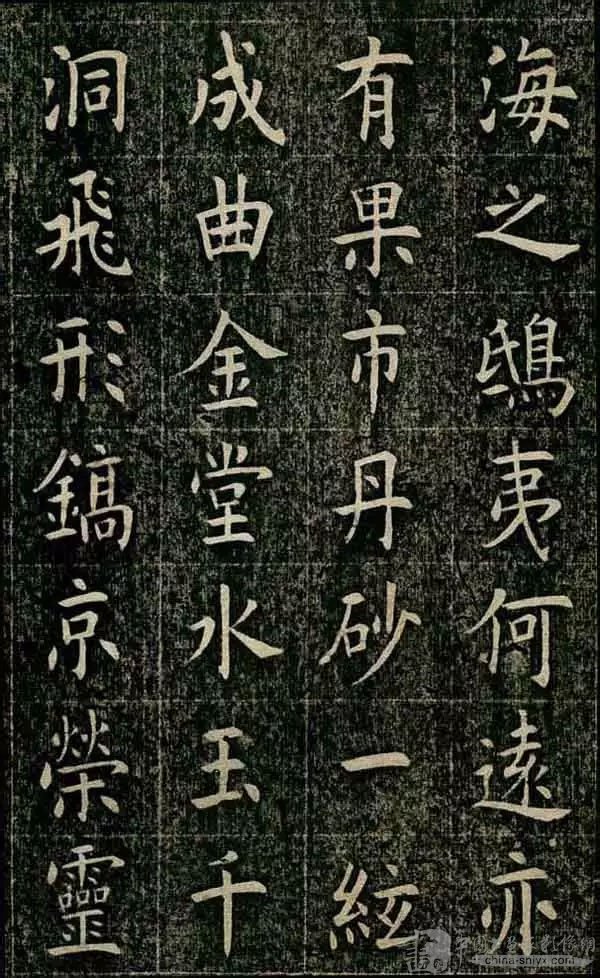 海之鴟夷何遠亦
有果市丹砂一絃
成曲金堂水玉千
洞飛形鎬京榮靈
china-snjyx.com